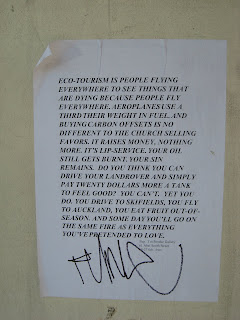 ECO-TOURISM IS PEOPLE FLYING
EVERYWHERE TO SEE THINGS THAT
ARE DYING BECAUSE PEOPLE FLY
EVERYWHERE. AEROPLANES USE A
THIRD THEIR WEIGHT IN FUEL. AND
BUYING CARBON OFFSETS IS NO
DIFFERENT TO THE CHURCH SELLING
FAVORS. IT RAISES MONEY, NOTHING
MORE. IT'S LIP-SERVICE. YOUR OIL
STILL GETS BURNT. YOUR SIN
REMAINS. DO YOU THINK YOU CAN
DRIVE YOUR LANDROVER AND SIMPLY
PAY TWENTY DOLLARS MORE A TANK
TO FEEL GOOD? YOU CAN'T. YET YOU
DO. YOU DRIVE TO SKIFIELDS, YOU FLY
TO AUCKLAND, YOU EAT FRUIT OUT-OF-
SEASON. AND SOME DAY YOU'LL GO ON
THE SAME FIRE AS EVERYTHING
YOU'VE PRETENDED TO LOVE.